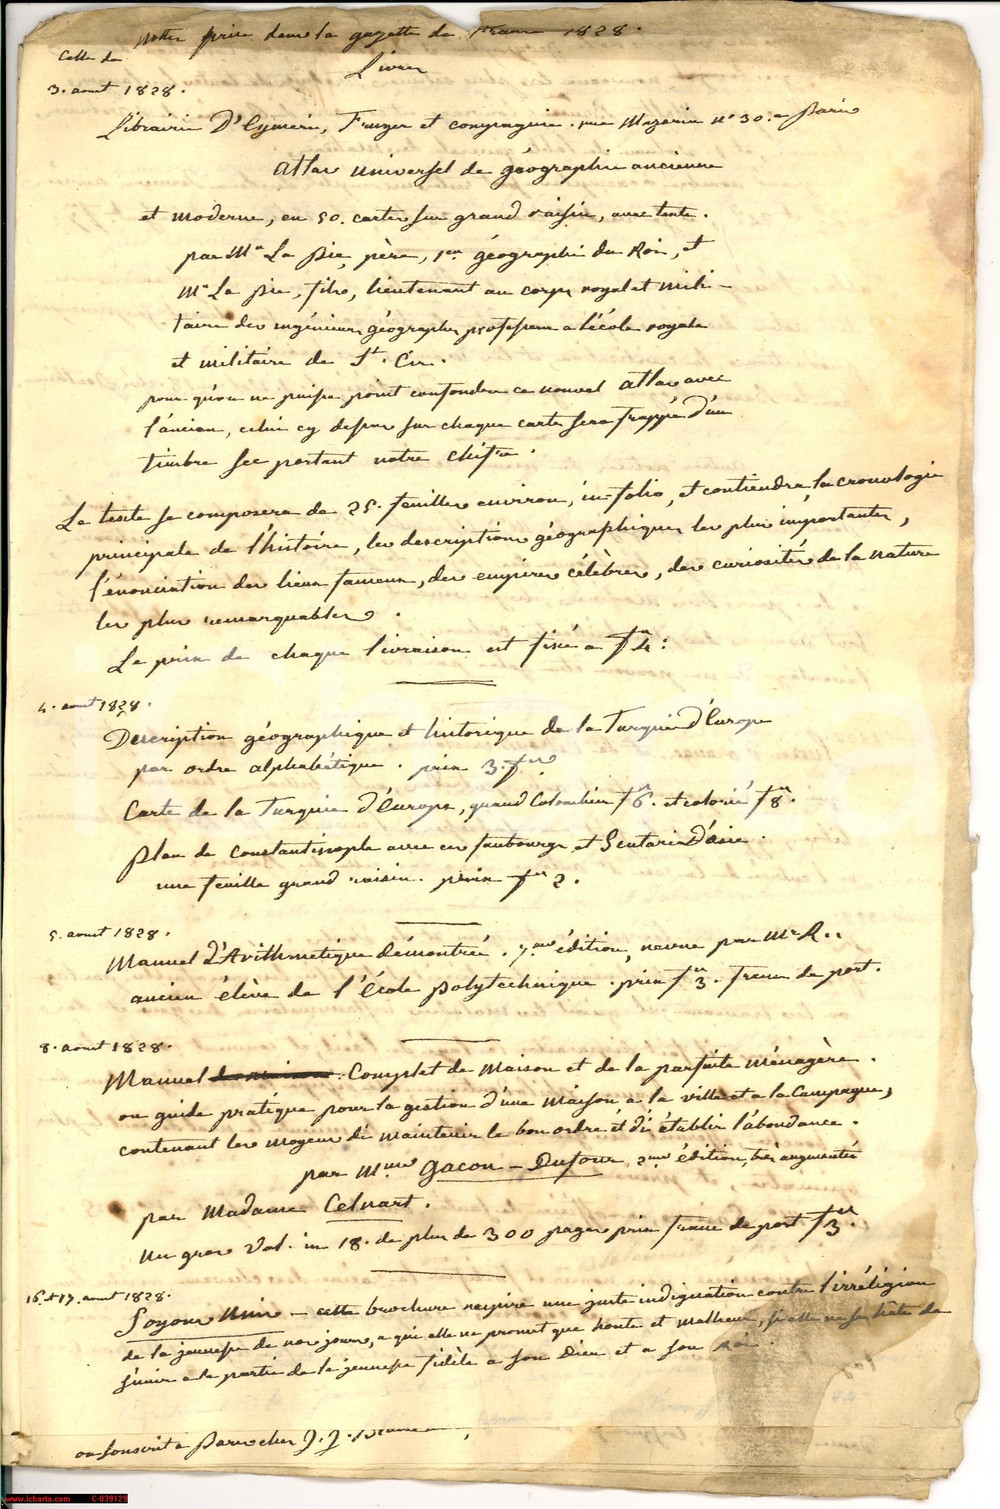 Notes prise dans la gazette de France 1828.
Celle du
Livres
3. aout 1828.
Librairie D'Eymeri, Fruger et compagnie. rue Mazarin n° 30. a Paris
Atlas universel de géographie ancienne
et moderne, en 50. cartes sur grand raisin, avec texte.
par Mr La Pie, père, 1er géographe du Roi, et
Mr La Pie, fils, lieutenant au corps royal et mili-
taire des ingénieurs géographes professeur a l'école royale
et militaire de St. Cir.
pour qu'on ne puisse point confondre ce nouvel atlas avec
l'ancien, celui cy dessus sur chaque carte sera frappé d'un
timbre sec portant notre chifre.
Le texte se composera de 25. feuilles environ, in-folio, et contiendra la cronologie
principale de l'histoire, les descriptions géographiques les plus importantes,
l'énonciation des lieux fameux, des empires célèbres, des curiosités de la nature
les plus remarquables.
Le prix de chaque livraison est fixé a fr 4:
4. aout 1828.
Description géographique et historique de la Turquie d'Europe
par ordre alphabétique. prix 3. frs
Carte de la Turquie d'Europe, grand Colombier fr 6. et colorié fr 8.
Plan de constantinople avec ses faubourgs et Scutari d'asie.
une feuille grand raisin. prix fr 2.
5. aout 1828.
Manuel d'Arithmétique démontrée. 7.me édition, revue par Mr R..
ancien élève de l'École Polytechnique. prix fr 3. franc de port.
8. aout 1828.
Manuel Complet de Maison et de la parfaite ménagère.
ou guide pratique pour la gestion d'une maison a la ville et a la Campagne,
contenant les moyens d'i maintenir le bon ordre et d'i établir l'abondance.
par Mme Gacon-Dufour, 2me édition, très augmentée
par Madame Celnart.
Un gros Vol. in 18. de plus de 300 pages prix franc de port fr 3.
16. et 17. aout 1828.
Soyons Unis - cette brochure respire une juste indignation contre l'irréligion
de la jeunesse de nos jours, a qui elle ne promet que honte et malheur, si elle ne se hâte de
s'unir a la partie de la jeunesse fidèle a son Dieu et a son Roi.
on souscrit a Paris chez J. J.
www.icharta.com C-039129